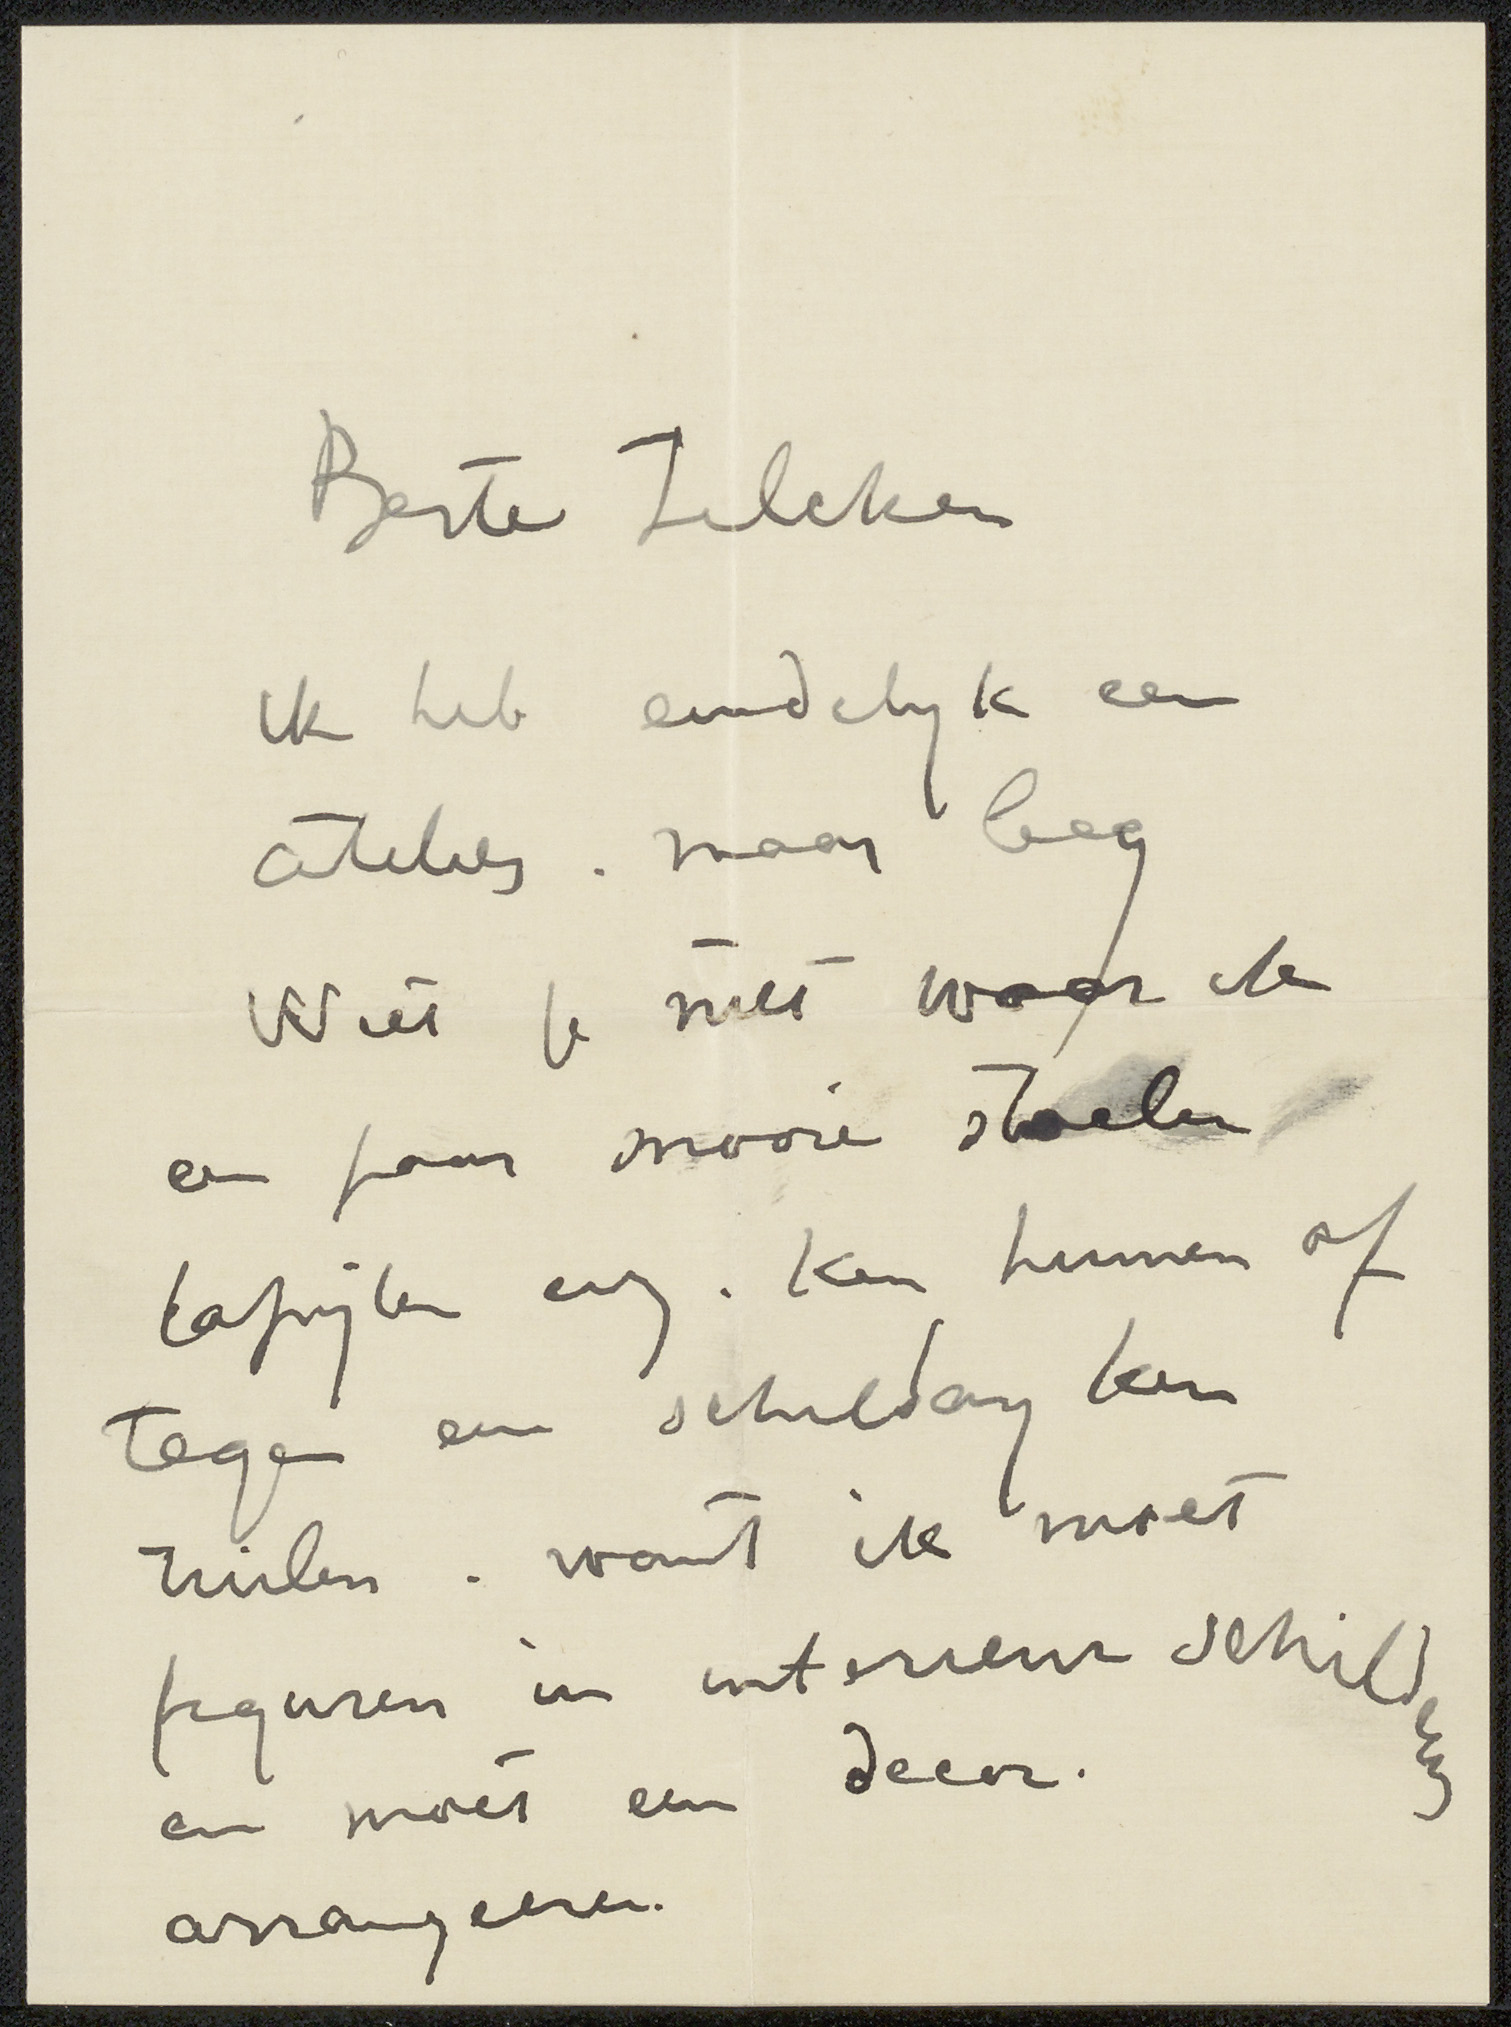 Beste Zilcken
ik heb eindelyk een
atelier. maar leeg
Weet je niet waar ik
een paar mooie stoelen
tapijten enz. kan huuren of
tegen een schildery kan
ruilen. want ik moet
figuren in interieur schilderen
en moet een decor.
arrangeeren.